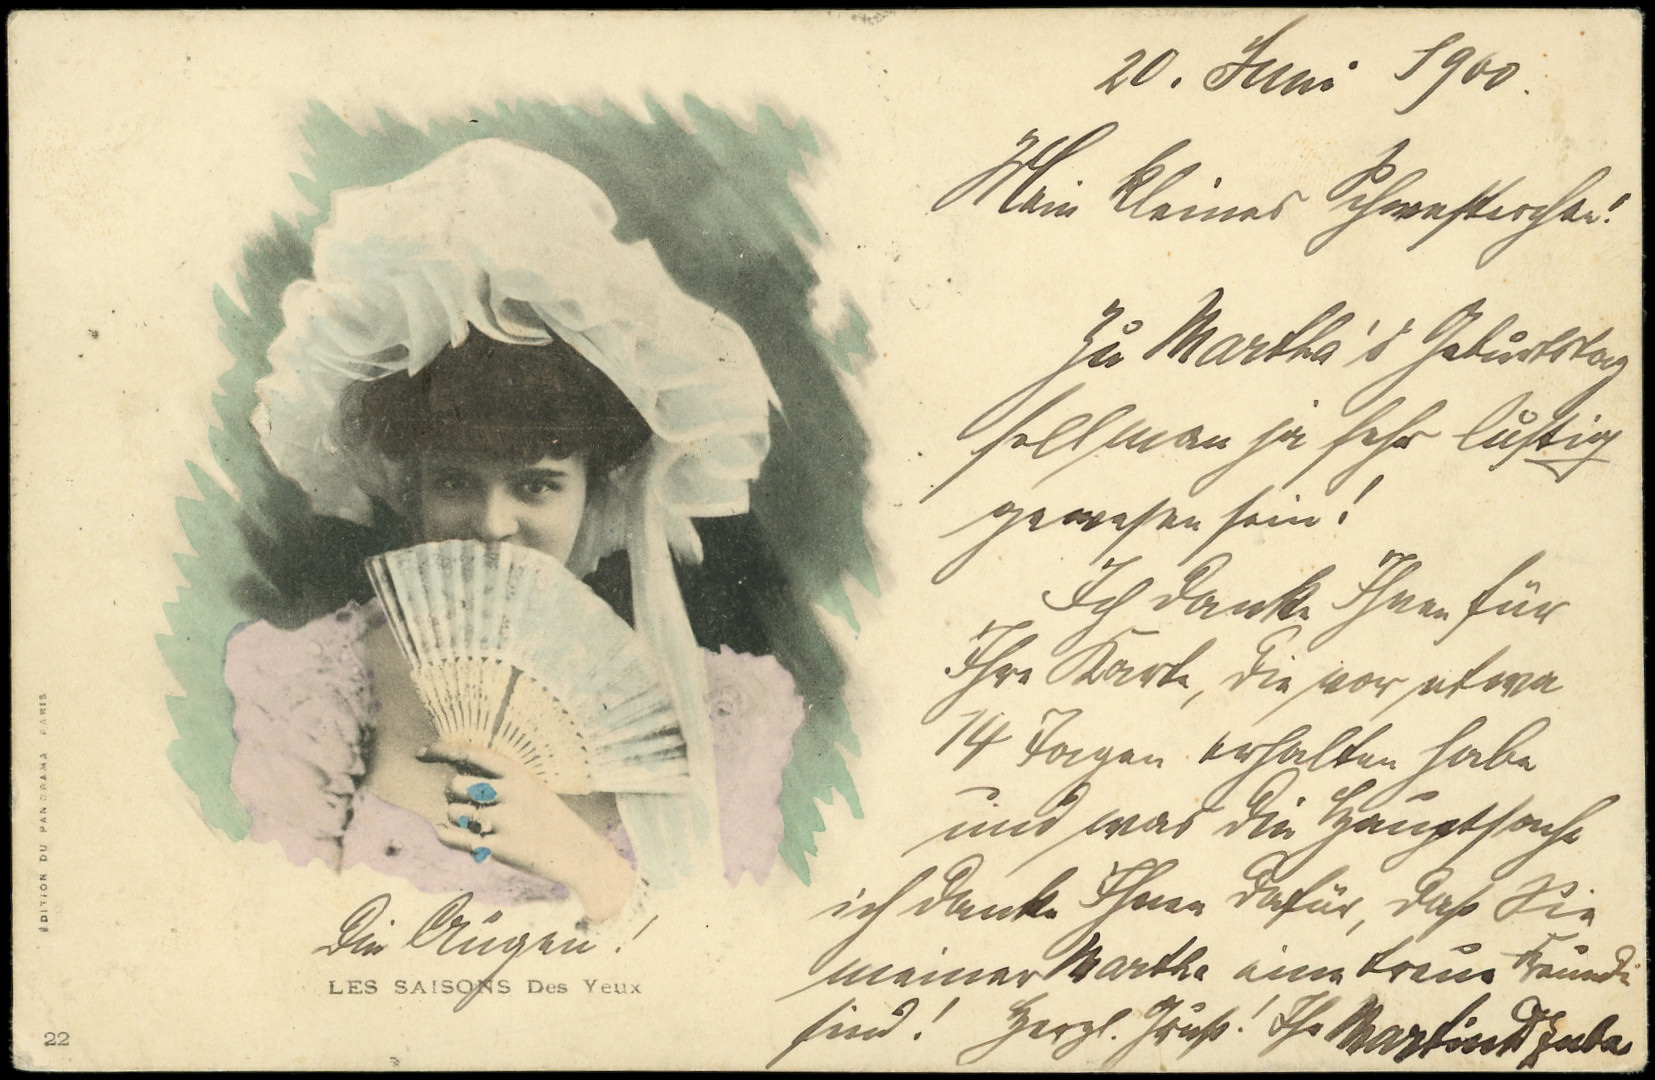 20. Juni 1900.
Mein kleines Schwesterchen!
Zu Martha's Geburtstag
soll man ja sehr lustig
gewesen sein!
Ich danke Ihnen für
Ihre Karte, die vor etwa
14 Tagen erhalten habe
und was die Hauptsache
ich danke Ihnen dafür, daß Sie
meiner Martha eine treue Freundin
sind! Herzl. Gruß! Ihr Martin
Die Augen!
LES SAISONS Des Yeux
22
EDITION DU PANORAMA PARIS